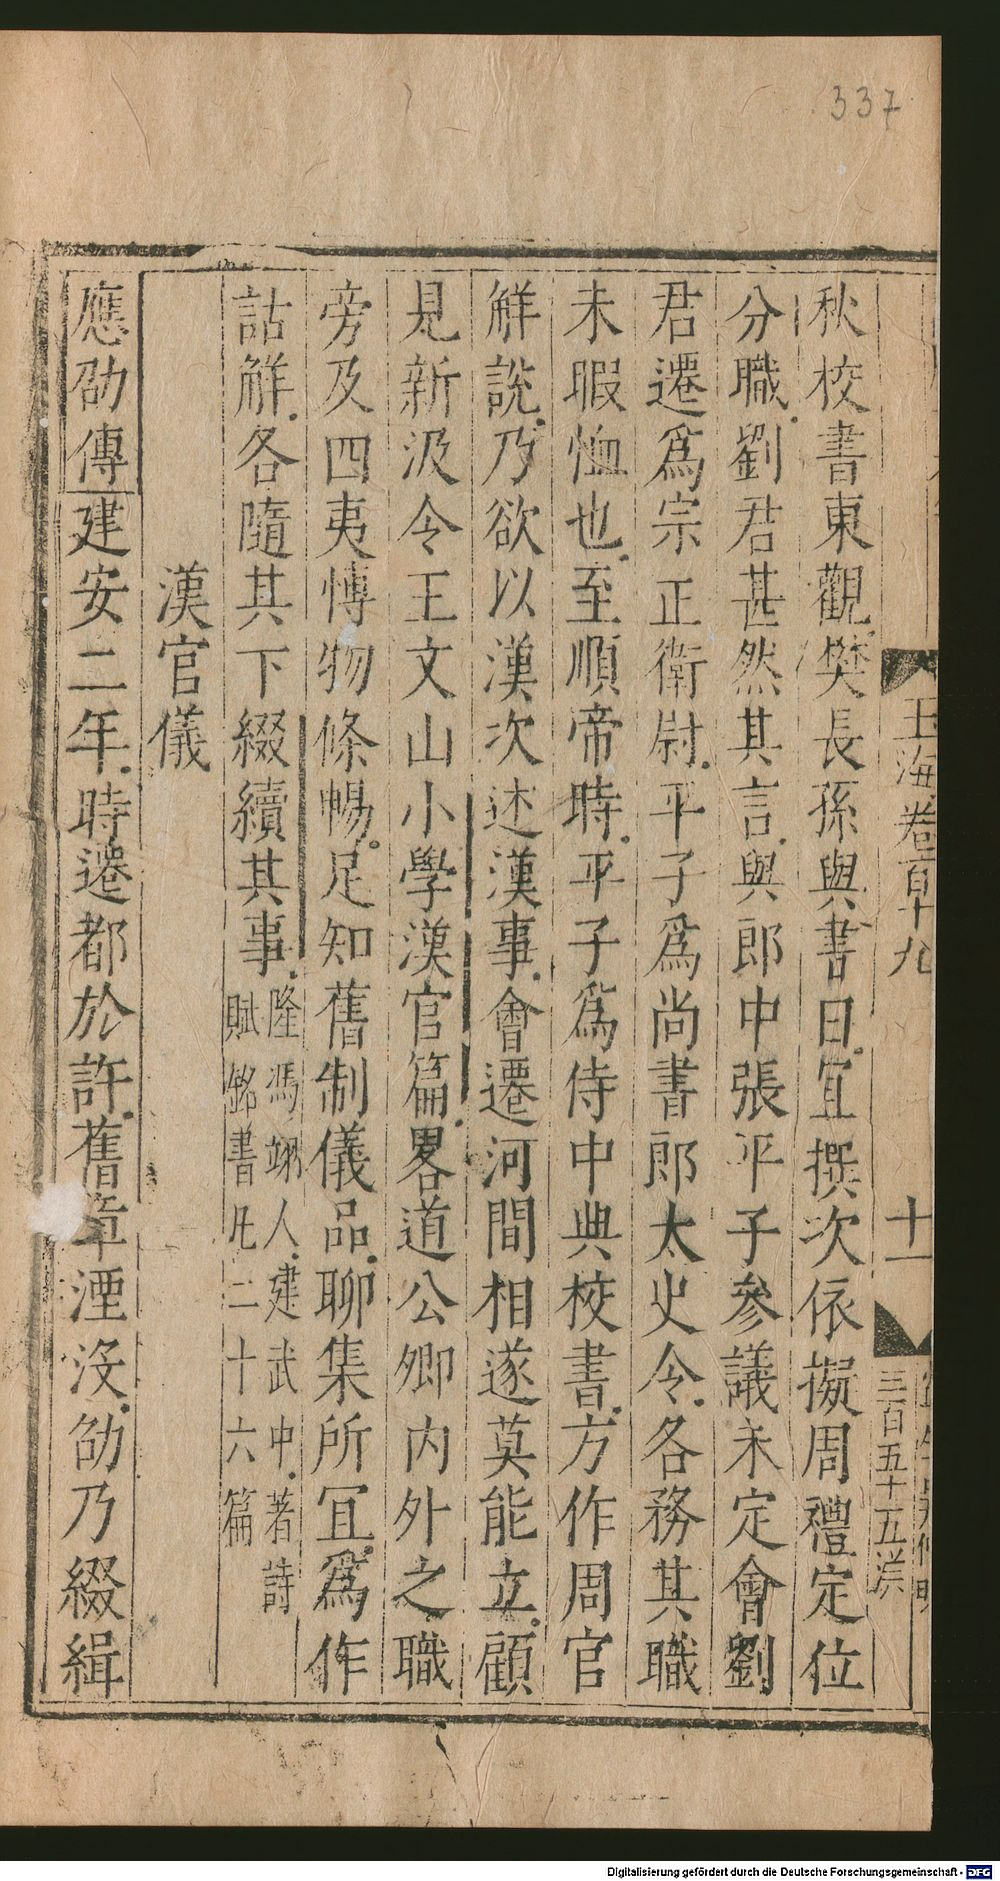 337
玉海卷百十九
十一
三百五十五洪
秋校書東觀樊長孫與書曰宜撰次依擬周禮定位
分職劉君甚然其言與郎中張平子參議未定會劉
君遷爲宗正衛尉平子爲尚書郎太史令各務其職
未暇恤也至順帝時平子爲侍中典校書方作周官
觧說乃欲以漢次述漢事會遷河間相遂莫能立顧
見新汲令王文山小學漢官篇畧道公卿内外之職
旁及四夷愽物條暢足知舊制儀品聊集所宜爲作
詁觧各隨其下綴續其事隆馮翊人建武中著詩
賦銘書凡二十六篇
漢官儀
應劭傳建安二年時遷都於許舊章湮没劭乃綴緝
Digitalisierung gefördert durch die Deutsche Forschungsgemeinschaft - DFG